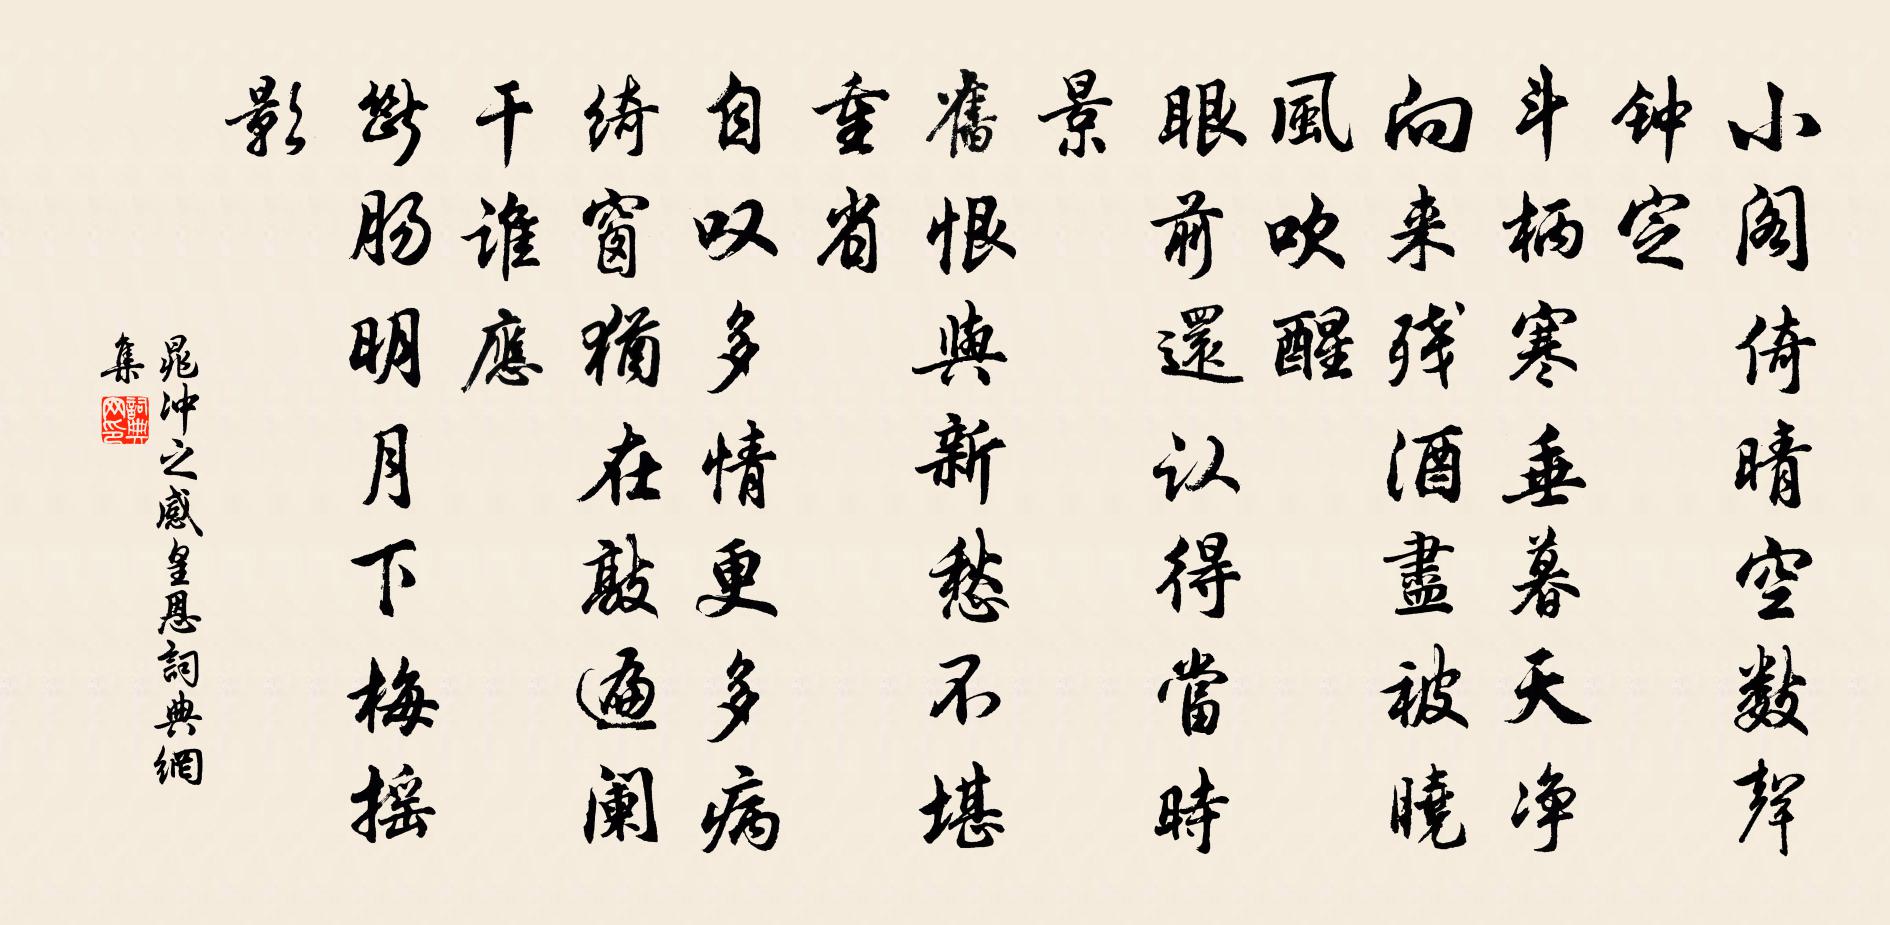 小阁倚晴空数聲
钟定
斗柄寒垂暮天净
向来残酒盡被曉
風吹醒
眼前還认得當時
景
舊恨與新愁不堪
重省
自叹多情更多病
绮窗猶在敲遍阑
干谁應
斷肠明月下梅摇
影
晁冲之感皇恩詞典網
集
詞典
网印